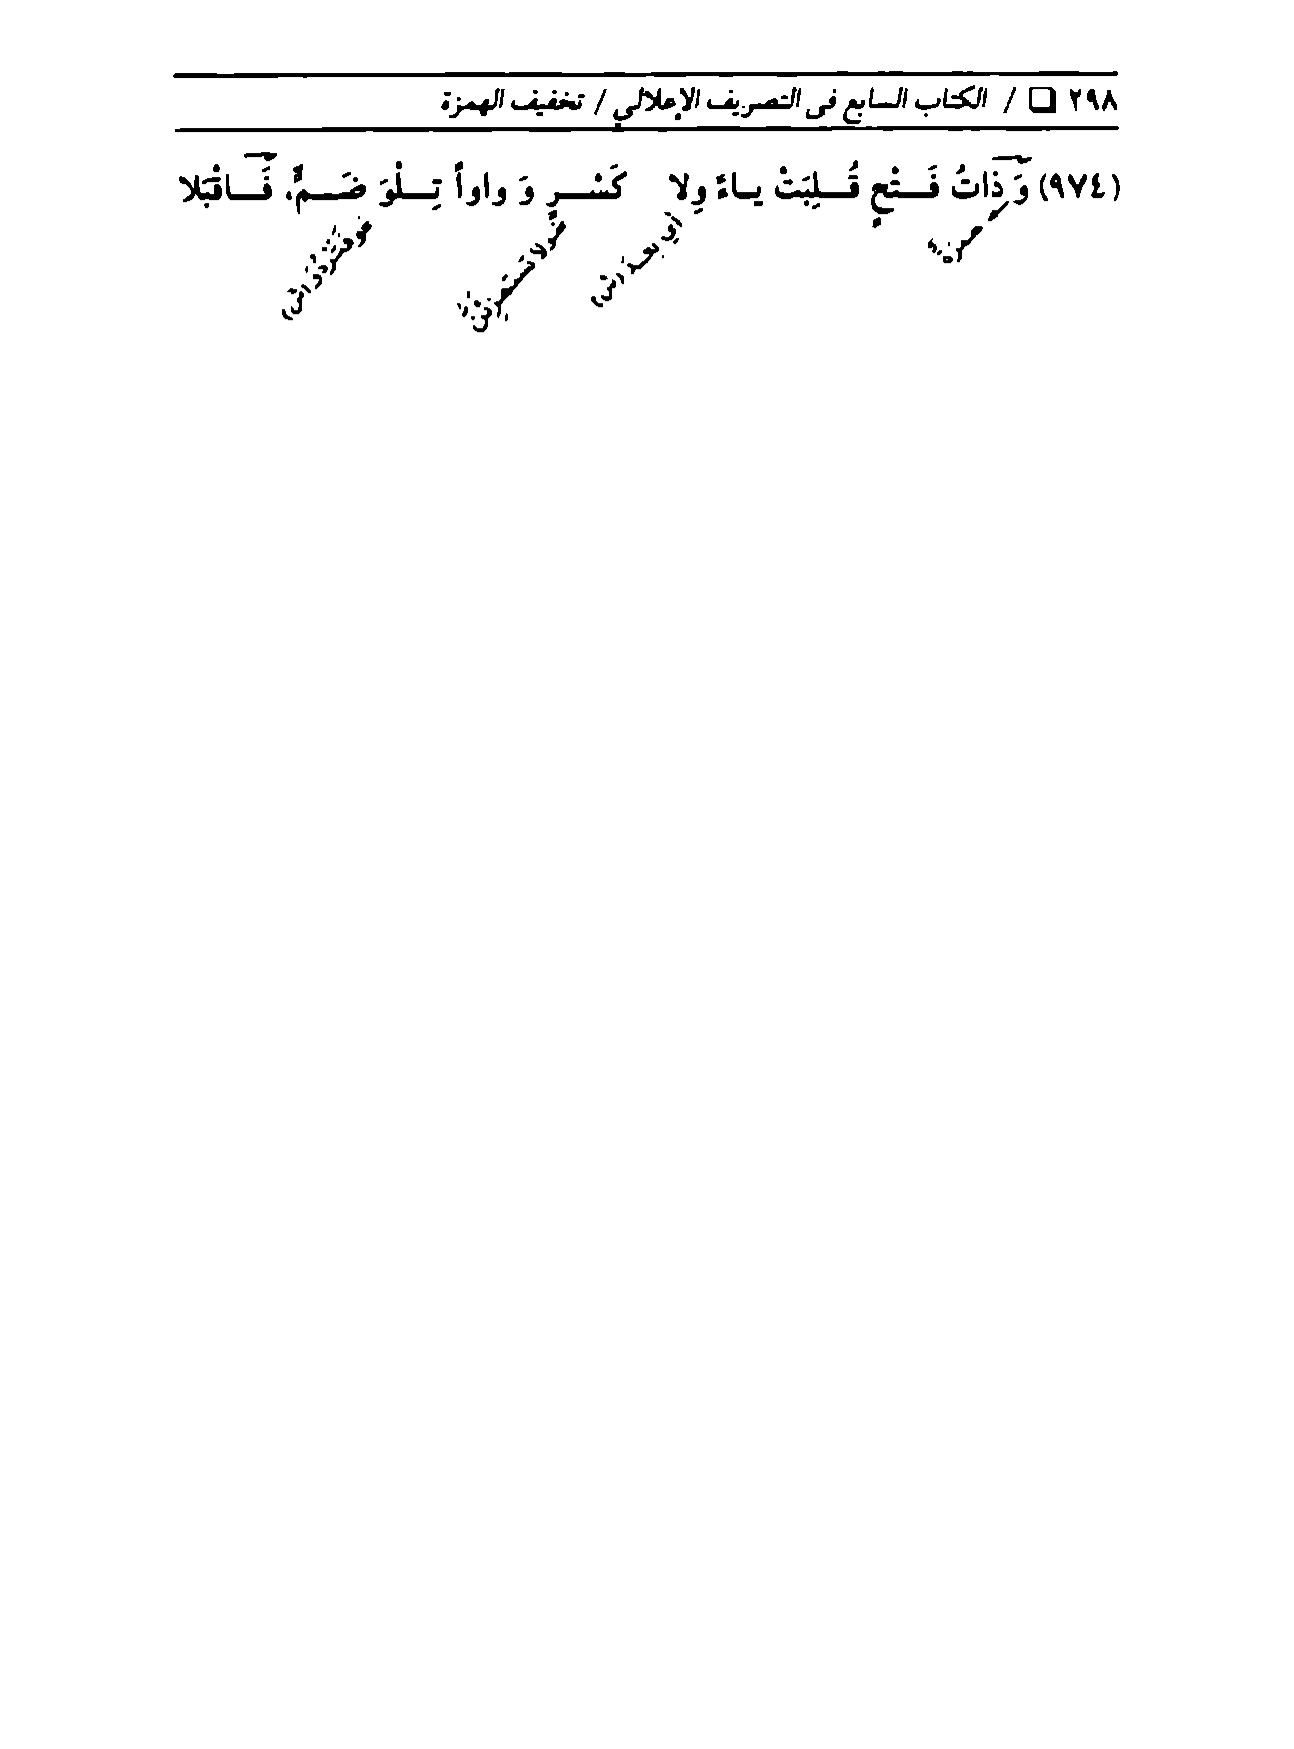 ٢٩٨ □ / الكتاب السابع في التصريف الإعلالي / تخفيف الهمزة
(٩٧٤) وَذَاتُ فَتْحٍ قُلِبَتْ ياءً وِلا كَسْرٍ وَ واواً تِلْوَ ضَمٍّ، فَاقْبَلا
همزة
أي بعد